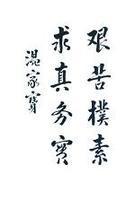 艰苦樸素
求真务實
温家宝